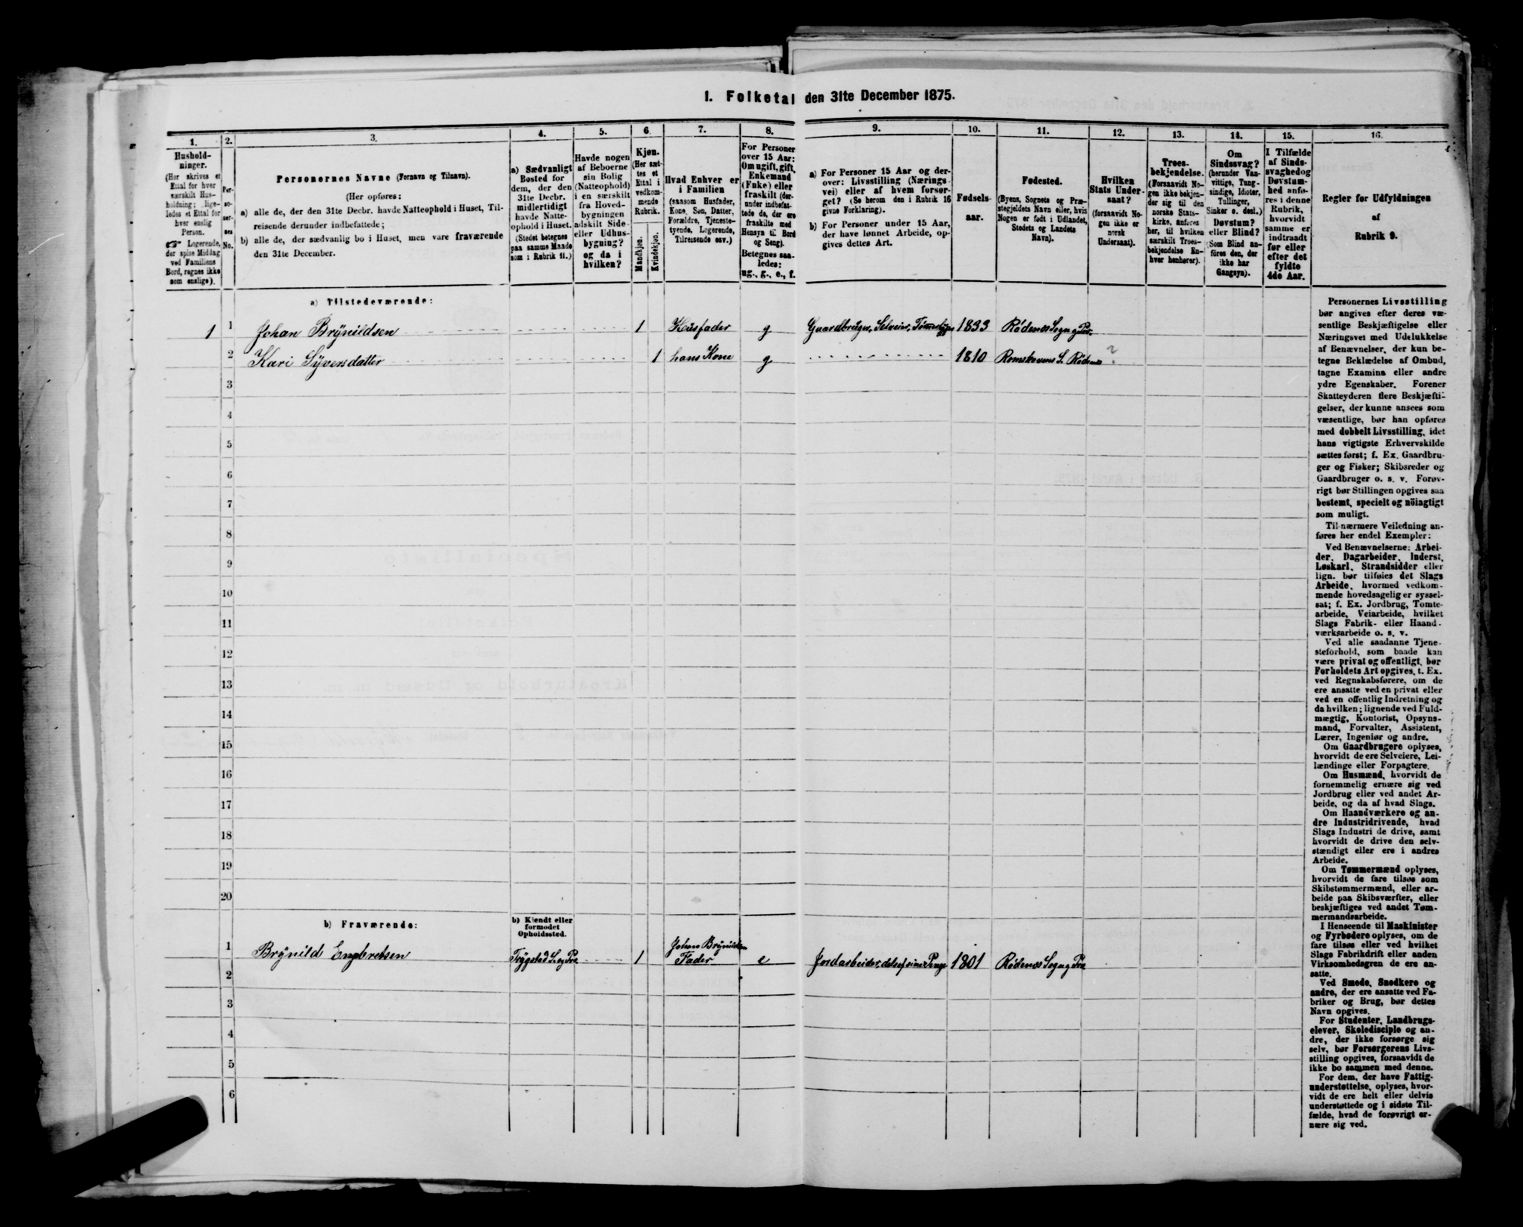 1. Folketal den 31te December 1875.
1. 2. 3. 4. 5. 6. 7. 8. 9. 10. 11. 12. 13. 14. 15. 16.
Hushold-
ninger.
(Her skrives et
Ettal for hver
særskilt Hus-
holdning; lige-
ledes et Ettal for
hver enslig
Person.
☞ Logerende,
der spise Middag
ved Familiens
Bord, regnes ikke
som enslige).
Per-
so-
ner-
nes
No.
Personernes Navne (Fornavn og Tilnavn).
(Her opføres:
a) alle de, der den 31te Decbr. havde Natteophold i Huset, Til-
reisende derunder indbefattede;
b) alle de, der sædvanlig bo i Huset, men vare fraværende
den 31te December.
a) Sædvanligt
Bosted for
dem, der den
31te Decbr.
midlertidigt
havde Natte-
ophold i Huset.
(Stedet betegnes
paa samme Maade
som i Rubrik 11.)
Havde nogen
af Beboerne
sin Bolig
(Natteophold)
i en særskilt
fra Hoved-
bygningen
adskilt Side-
eller Udhus-
bygning?
og da i
hvilken?
Kjøn.
(Her sæt-
tes et
Ettal i
vedkom-
mende
Rubrik.
Mandkjøn.
Kvindekjøn.
Hvad Enhver er
i Familien
(saasom Husfader,
Kone, Søn, Datter,
Forældre, Tjeneste-
tyende, Logerende,
Tilreisende osv.)
For Personer
over 15 Aar:
Om ugift, gift,
Enkemand
(Enke) eller
fraskilt (der-
under indbefat-
tede da, der ere
fraskilte med
Hensyn til Bord
og Seng).
Betegnes saa-
ledes:
ug., g., e., f.
a) For Personer 15 Aar og der-
over: Livsstilling (Nærings-
vei) eller af hvem forsør-
get? (Se herom den i Rubrik 16
givne Forklaring).
b) For Personer under 15 Aar,
der have lønnet Arbeide, op-
gives dettes Art.
Fødsels-
aar.
Fødested.
(Byens, Sognets og Præ-
stegjeldets Navn eller, hvis
Nogen er født i Udlandet,
Stedets og Landets
Navn).
Hvilken
Stats Under-
saat?
(forsaavidt No-
gen ikke er
norsk
Undersaat).
Troes-
bekjendelse.
(Forsaavidt No-
gen ikke bekjen-
der sig til den
norske Stats-
kirke, anføres
her, til hvilken
særskilt Troes-
bekjendelse En-
hver henhører).
Om
Sindssvag?
(herunder Van-
vittige, Tung-
sindige, Idioter,
Tullinger,
Sinker o. desl.)
Døvstum?
eller Blind?
(Som Blind an-
føres den, der
ikke har
Gangsyn).
I Tilfælde
af Sinds-
svaghed og
Døvstum-
hed anfø-
res i denne
Rubrik,
hvorvidt
samme er
indtraadt
før eller
efter det
fyldte
4de Aar.
Regler for Udfyldningen
af
Rubrik 9.
a) Tilstedeværende:
1 1 Johan Brynildsen 1 Husfader g Gaardbruger, Selveier, 1833 Rødenes Sogn og Pr.
2 Kari Syversdatter 1 hans Kone g 1810 Romskovens S. Rødenes ?
3
4
5
6
7
8
9
10
11
12
13
14
15
16
17
18
19
20
b) Fraværende:
b) Kjendt eller
formodet
Opholdssted.
1 Brynild Engebretsen Trygstad S og Pr. 1 Johan Brynildsen
Fader e 1801 Rødenes Sogn og Pr.
2
3
4
5
6
Personernes Livsstilling
bør angives efter deres væ-
sentlige Beskjæftigelse eller
Næringsvei med Udelukkelse
af Benævnelser, der kun be-
tegne Beklædelse af Ombud,
tagne Examina eller andre
ydre Egenskaber. Forener
Skatteyderen flere Beskjæfti-
gelser, der kunne ansees som
væsentlige, bør han opføres
med dobbelt Livsstilling, idet
hans vigtigste Erhvervskilde
sættes først; f. Ex. Gaardbru-
ger og Fisker; Skibsreder og
Gaardbruger o. s. v. Forøv-
rigt bør Stillingen opgives saa
bestemt, specielt og nöiagtigt
som muligt.
Til nærmere Veiledning an-
føres her endel Exempler:
Ved Benævnelserne: Arbei-
der, Dagarbeider, Inderst,
Løskarl, Strandsidder eller
lign. bør tilføies det Slags
Arbeide, hvormed vedkom-
mende hovedsagelig er syssel-
sat; f. Ex. Jordbrug, Tomte-
arbeide, Veiarbeide, hvilket
Slags Fabrik- eller Haand-
værksarbeide o. s. v.
Ved alle saadanne Tjene-
steforhold, som baade kan
være privat og offentligt, bør
Forholdets Art opgives, t. Ex.
ved Regnskabsførere, om de
ere ansatte ved en privat eller
ved en offentlig Indretning og
da hvilken; lignende ved Fuld-
mægtig, Kontorist, Opsyns-
mand, Forvalter, Assistent,
Lærer, Ingeniør og andre.
Om Gaardbrugere oplyses,
hvorvidt de ere Selveiere, Lei-
lændinge eller Forpagtere.
Om Husmænd, hvorvidt de
fornemmelig ernære sig ved
Jordbrug eller ved andet Ar-
beide, og da af hvad Slags.
Om Haandværkere og an-
dre Industridrivende, hvad
Slags Industri de drive, samt
hvorvidt de drive den selv-
stændigt eller ere i andres
Arbeide.
Om Tømmermænd oplyses,
hvorvidt de fare tilsøs som
Skibstømmermænd, eller ar-
beide paa Skibsværfter, eller
beskjæftiges ved andet Tøm-
mermandsarbeide.
I Henseende til Maskinister
og Fyrbødere oplyses, om de
fare tilsøs eller ved hvilket
Slags Fabrikdrift eller anden
Virksomhedsgren de ere an-
satte.
Ved Smede, Snedkere og
andre, der ere ansatte ved Fa-
briker og Brug, bør dettes
Navn opgives.
For Studenter, Landbrugs-
elever, Skoledisciple og an-
dre, der ikke forsørge sig
selv, bør Forsørgerens Livs-
stilling opgives, forsaavidt de
ikke bo sammen med denne.
For dem, der have Fattig-
understøttelse, oplyses, hvor-
vidt de ere helt eller delvis
understøttede og i sidste Til-
fælde, hvad de forøvrigt er-
nære sig ved.